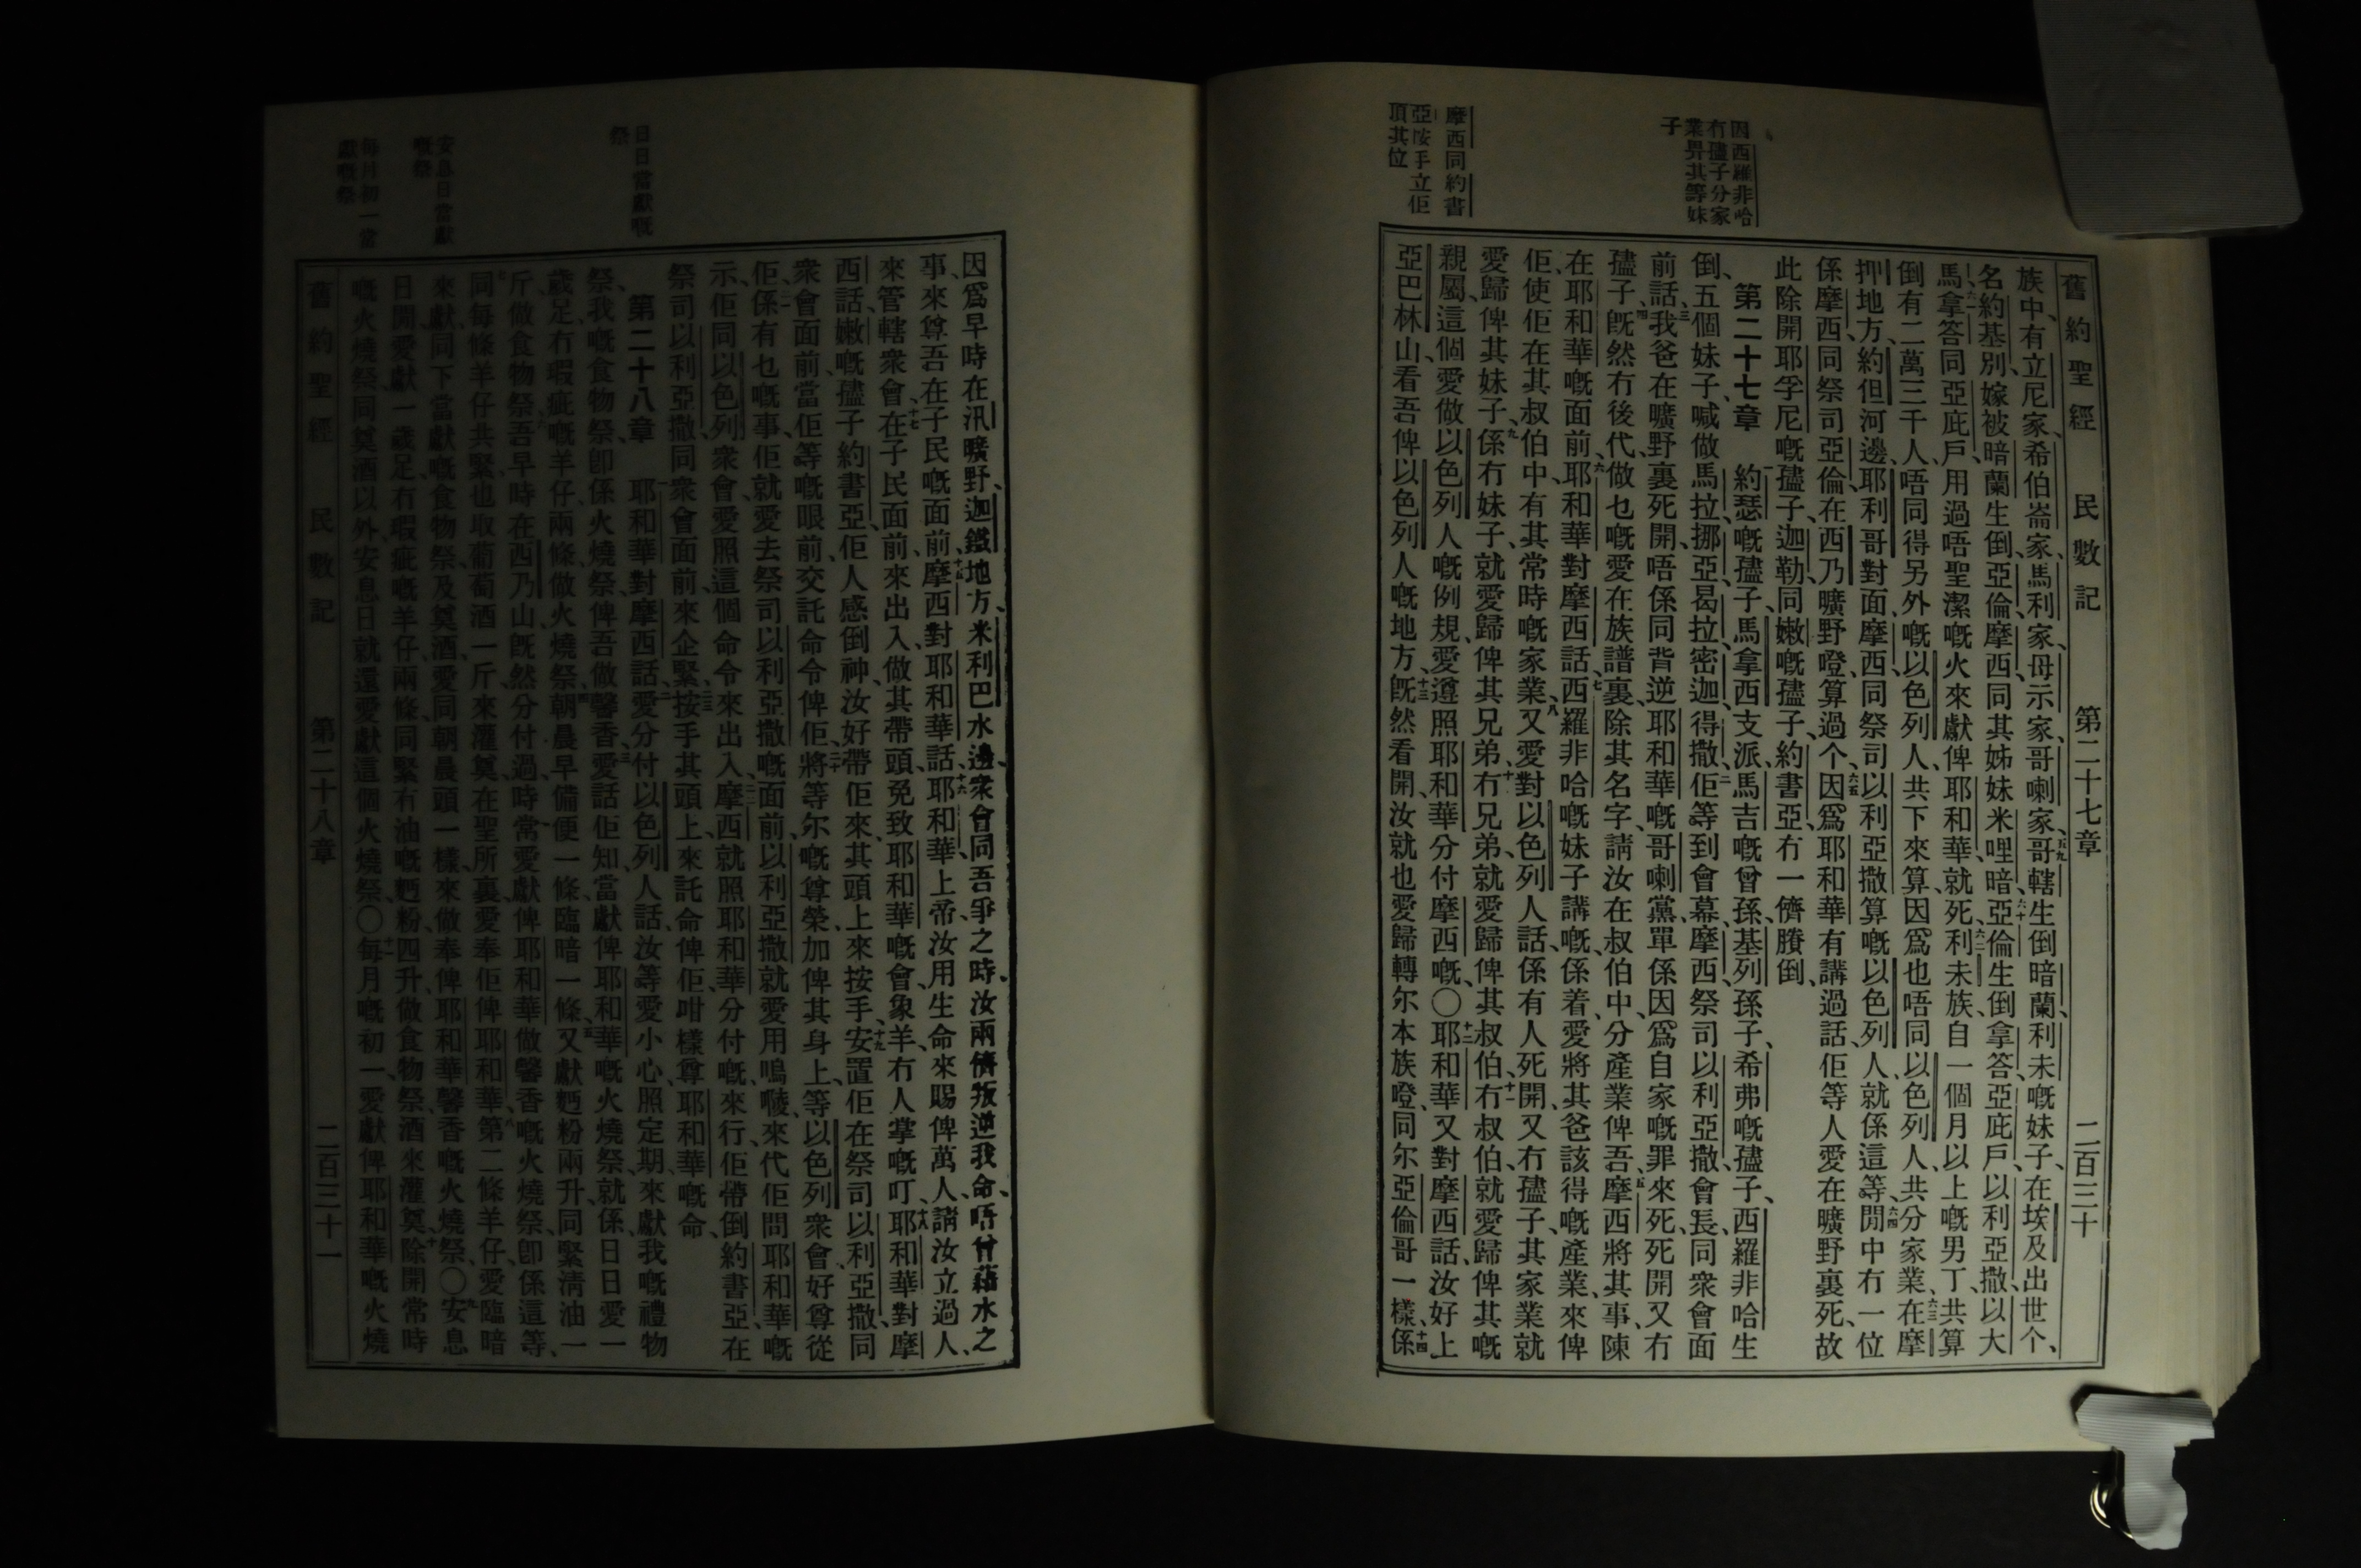 舊約聖經 民數記 第二十七章 二百三十
因西羅非哈
冇孻子分家
業畀其等妹
子
摩西同約書
亞按手立佢
頂其位
族中、有立尼家、希伯崙家、馬利家、母示家、哥喇家、五九哥轄生倒暗蘭、利未嘅妹子、在埃及出世个、
名約基別、嫁被暗蘭生倒、亞倫摩西、同其姊妹米哩暗、六十亞倫生倒拿答、亞庇戶、以利亞撒、以大
馬、六一拿答同亞庇戶、用過唔聖潔嘅火來獻俾耶和華、就死、六二利未族、自一個月以上嘅男丁、共算
倒有二萬三千人、唔同得另外嘅以色列人、共下來算、因為也唔同以色列人、共分家業、六三在摩
押地方、約但河邊、耶利哥對面、摩西同祭司以利亞撒、算嘅以色列人、就係這等、六四閒中冇一位
係摩西同祭司亞倫、在西乃曠野噔算過个、六五因為耶和華有講過話、佢等人愛在曠野裏死、故
此除開耶孚尼嘅孻子、迦勒、同嫩嘅孻子、約書亞、冇一儕賸倒、
第二十七章 一約瑟嘅孻子、馬拿西支派、馬吉嘅曾孫、基列孫子、希弗嘅孻子、西羅非哈生
倒、五個妹子、喊做馬拉、挪亞、曷拉、密迦、得撒、二佢等到會幕、摩西、祭司以利亞撒、會長、同衆會面
前話、三我爸在曠野裏死開、唔係同背逆耶和華嘅哥喇黨、單係因為自家嘅罪來死、死開又冇
孻子、四旣然冇後代、做乜嘅愛在族譜裏、除其名字、請汝在叔伯中、分產業俾吾、五摩西將其事、陳
在耶和華嘅面前、六耶和華對摩西話、七西羅非哈嘅妹子講嘅、係着、愛將其爸該得嘅產業、來俾
佢、使佢在其叔伯中、有其常時嘅家業、八又愛對以色列人話、係有人死開、又冇孻子、其家業就
愛歸俾其妹子、九係冇妹子、就愛歸俾其兄弟、十冇兄弟、就愛歸俾其叔伯、十一冇叔伯、就愛歸俾其嘅
親屬、這個愛做以色列人嘅例規、愛遵照耶和華分付摩西嘅、〇十二耶和華又對摩西話、汝好上
亞巴林山、看吾俾以色列人嘅地方、十三旣然看開、汝就也愛歸轉尔本族噔、同尔亞倫哥一樣、十四係
因為早時在汛曠野、迦鐵地方、米利巴水邊、衆會同吾爭之時、汝兩儕叛逆我命、唔曾藉水之
事、來尊吾在子民嘅面前、十五摩西對耶和華話、十六耶和華上帝、汝用生命來賜俾萬人、請汝立過人、
來管轄衆會、十七在子民面前來出入、做其帶頭、免致耶和華嘅會、象羊冇人掌嘅叮、十八耶和華對摩
西話、嫩嘅孻子約書亞、佢人感倒神、汝好帶佢來、其頭上來按手、十九安置佢在祭司以利亞撒、同
衆會面前、當佢等嘅眼前、交託命令俾佢、二十將等尔嘅尊榮、加俾其身上、等以色列衆會、好尊從
佢、二一係有乜嘅事、佢就愛去祭司以利亞撒嘅面前、以利亞撒就愛用嗚㖫、來代佢問耶和華嘅
示、佢同以色列衆會、愛照這個命令來出入、二二摩西就照耶和華分付嘅、來行、佢帶倒約書亞、在
祭司以利亞撒、同衆會面前、來企緊、二三按手其頭上、來託命俾佢、咁樣尊耶和華嘅命、
第二十八章 一耶和華對摩西話、二愛分付以色列人話、汝等愛小心、照定期、來獻我嘅禮物
祭、我嘅食物祭、卽係火燒祭、俾吾做馨香、三愛話佢知、當獻俾耶和華嘅火燒祭、就係日日愛一
歲足、冇瑕疵嘅羊仔、兩條、做火燒祭、四朝晨早備便一條、臨暗一條、五又獻麪粉兩升、同緊清油一
斤、做食物祭、六吾早時在西乃山、旣然分付過、時常愛獻俾耶和華、做馨香嘅火燒祭、卽係這等、
七同每條羊仔、共緊也取葡萄酒一斤、來灌奠、在聖所裏愛奉佢俾耶和華、八第二條羊仔、愛臨暗
來獻、同下當獻嘅食物祭、及奠酒、愛同朝晨頭一樣、來做奉俾耶和華馨香嘅火燒祭、〇九安息
日閒愛獻一歲足、冇瑕疵嘅羊仔、兩條、同緊有油嘅麪粉、四升、做食物祭、酒來灌奠、十除開常時
嘅火燒祭、同奠酒以外、安息日就還愛獻這個火燒祭、〇十一每月嘅初一、愛獻俾耶和華嘅火燒
日日當獻嘅
祭
安息日當獻
嘅祭
每月初一當
獻嘅祭
舊約聖經 民數記 第二十八章 二百三十一